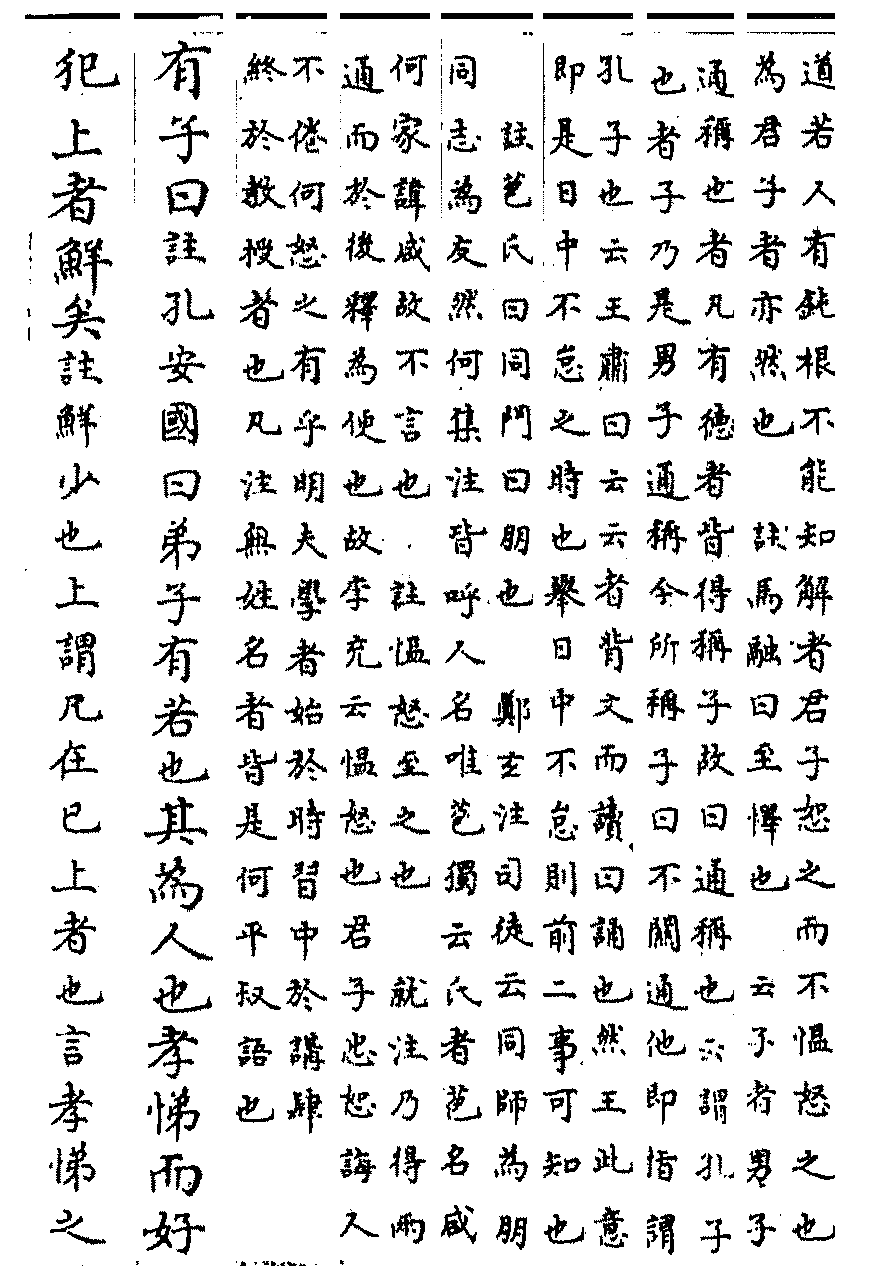 道若人有鈍根不能知解者君子恕之而不慍怒之也
為君子者亦然也　註馬融曰至懌也　云子者男子
通稱也者凡有德者皆得稱子故曰通稱也云謂孔子
也者子乃是男子通稱今所稱子曰不關通他即指謂
孔子也云王肅曰云云者背文而讀曰誦也然王此意
即是日中不怠之時也舉日中不怠則前二事可知也
註苞氏曰同門曰朋也　鄭玄注司徒云同師為朋
同志為友然何集注皆呼人名唯苞獨云氏者苞名咸
何家諱咸故不言也　註慍怒至之也　就注乃得兩
通而於後釋為便也故李充云慍怒也君子忠恕誨人
不倦何怒之有乎明夫學者始於時習中於講肄
終於教授者也凡注無姓名者皆是何平叔語也
有子曰註孔安國曰弟子有若也其為人也孝悌而好
犯上者鮮矣註鮮少也上謂凡在已上者也言孝悌之